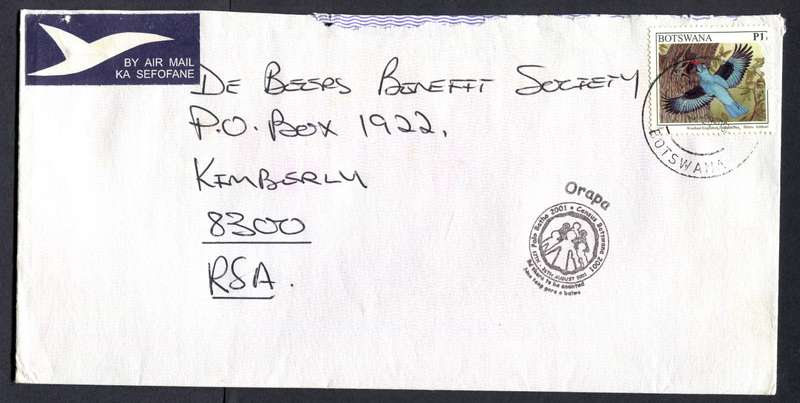 BY AIR MAIL
KA SEFOFANE
BOTSWANA P1
DE BEERS BENEFIT SOCIETY
P.O. BOX 1922,
KIMBERLY
8300
RSA.
BOTSWANA
Orapa
Palo Batho 2001 • Census Botswana 2001
17TH - 26TH AUGUST 2001
Be there to be counted